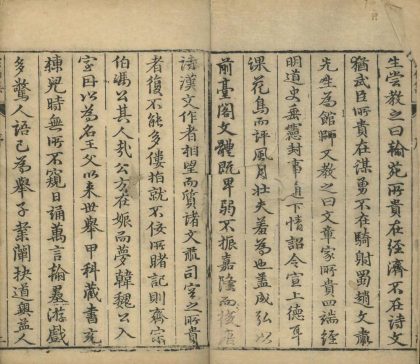 生嘗教之曰翰苑所貴在經濟不在詩文
猶武臣所貴在謀勇不在騎射蜀趙文肅
先生為館師又教之曰文章家所貴四端經
明道史垂憲封事通下情詔令宣上德耳
課花鳥而評風月壯夫羞為也蓋成弘以
前臺閣文體既卑弱不振嘉隆而後唐
詩漢文作者相望而質諸文肅司空之所貴
者復不能多僂指就不佞所睹記則齊宗
伯馮公其人哉公方在娠而夢韓魏公入
室因以為名王父以來世舉甲科藏書充
棟兒時無所不窺日誦萬言翰墨游戲
多驚人語已為舉子業闡抉道奧益人